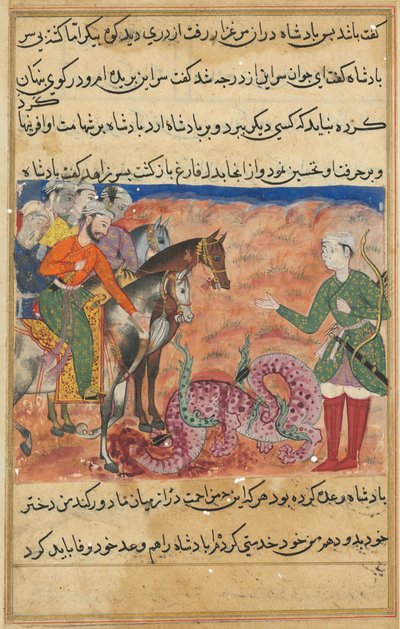 کفت باشد پس پادشاه در از مرغزار رفت از دری دید کوه پیکر اما کشته بی سر
پادشاه کفت ای جوان سر این از در چه شد کفت سر این بریده ام و در کوی پنهان کرد
کرده نباید که کسی دیکر ببرد و بر پادشاه ارد پادشاه بر شهامت او افرینها
و بر حرفت او تحسین نمود و از انجا بدل فارغ باز کشت پسر زاهد کفت پادشاه
پادشاه وعده کرده بود هر که این زحمت دراز میان ما دور کند من دختر
خود بدو دهم من خود خدمتی کردم پادشاه را هم وعده خود وفا باید کرد